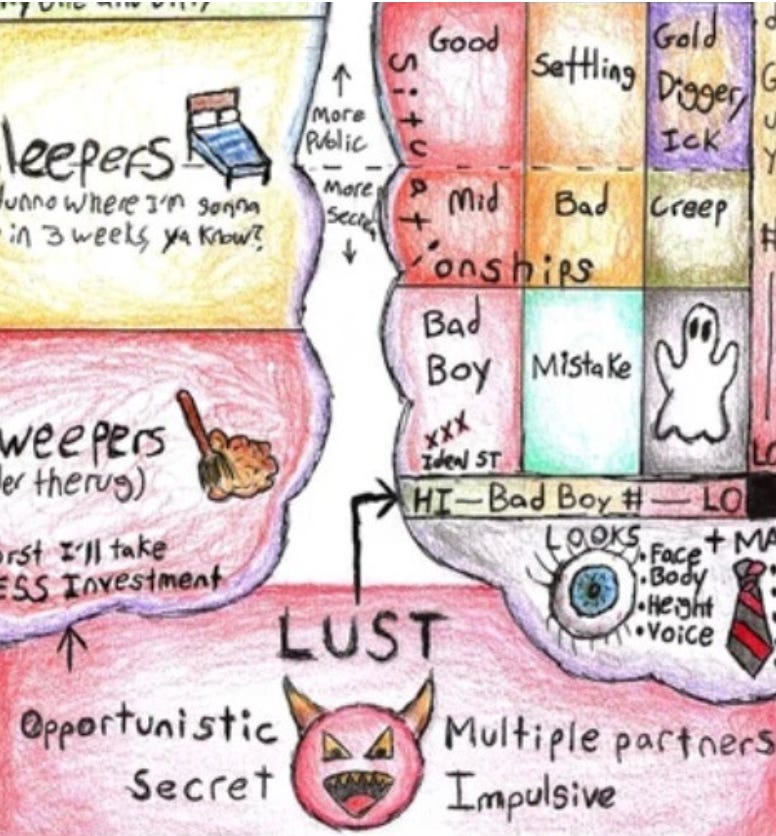 leepers
dunno where I'm gonna
in 3 weeks, ya know?
weepers
(under the rug)
I'll take
ESS Investment
More
Public
More
Secret
Good
Settling
Gold
Digger/
Ick
Situationships
Mid
Bad
Creep
Bad
Boy
XXX
Ideal ST
Mistake
HI—Bad Boy #—LO
LOOKS + MA
•Face
•Body
•Height
•Voice
LUST
Opportunistic
Secret
Multiple partners
Impulsive